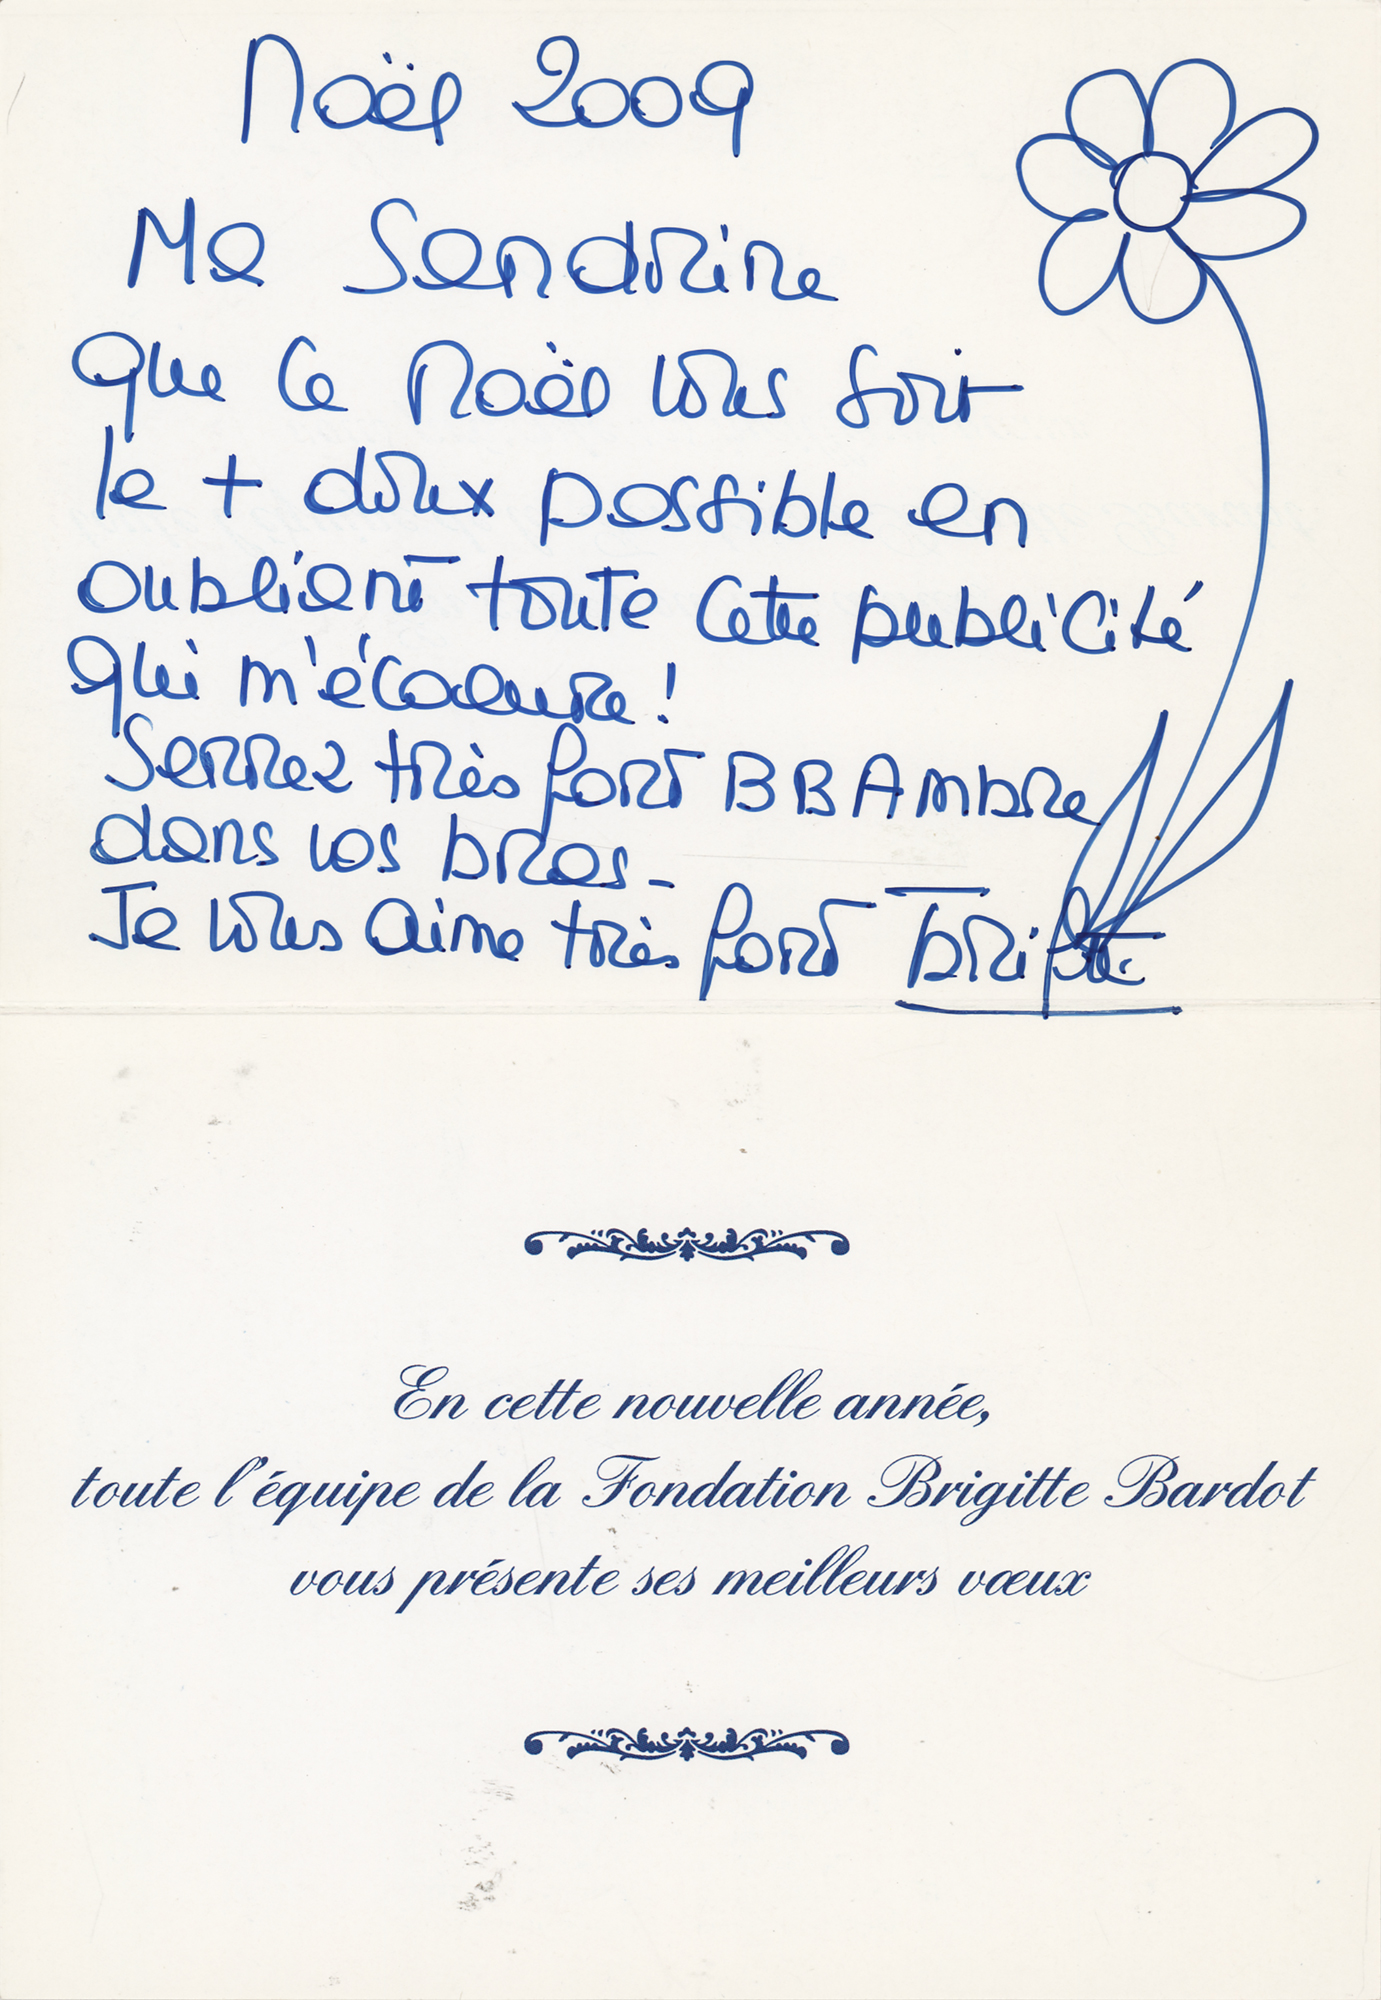 Noël 2009
Ma Sandrine
que ce Noël vous soit
le + doux possible en
oubliant toute cette publicité
qui m'écoeure!
Serrez très fort BB Ambre
dans vos bras_
Je vous aime très fort Brigitte
En cette nouvelle année,
toute l'équipe de la Fondation Brigitte Bardot
vous présente ses meilleurs vœux